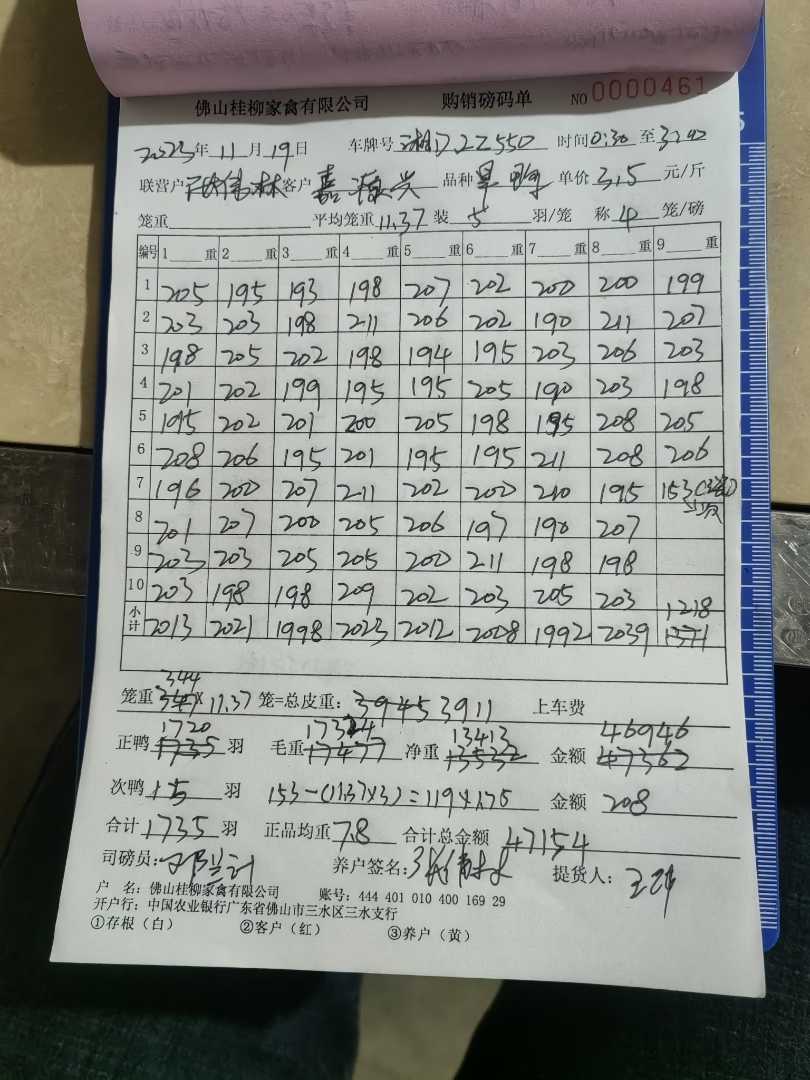 佛山桂柳家禽有限公司 购销磅码单 NO 0000461
2023年 11月 19日 车牌号 湘J22550 时间 0:30 至 3:
联营户 林 客户 嘉 兴 品种 单价 3.5 元/斤
笼重 平均笼重 11.37 装 5 羽/笼 称 4 笼/磅
编号 1 重 2 重 3 重 4 重 5 重 6 重 7 重 8 重 9 重
1 205 195 193 198 207 202 200 200 199
2 203 203 198 211 206 202 190 211 207
3 198 205 202 198 194 195 203 206 203
4 201 202 199 195 195 205 190 203 198
5 195 202 201 200 205 198 195 208 205
6 208 206 195 201 195 195 211 208 206
7 196 200 207 211 202 200 210 195 153
8 201 207 200 205 206 197 190 207
9 203 203 205 205 200 211 198 198
10 203 198 198 209 202 203 205 203
小计 2013 2021 1998 2023 2012 2008 1992 2039 1218 1371
344
笼重 347 × 11.37 笼=总皮重: 3945 3911 上车费
1720 17324 13413 46946
正鸭 1735 羽 毛重 17477 净重 13532 金额 47362
次鸭 15 羽 153-(11.37×3)=119×1.75 金额 208
合计 1735 羽 正品均重 7.8 合计总金额 47154
司磅员: 养户签名: 提货人:
户 名: 佛山桂柳家禽有限公司 账号: 444 401 010 400 169 29
开户行: 中国农业银行广东省佛山市三水区三水支行
①存根(白) ②客户(红) ③养户(黄)